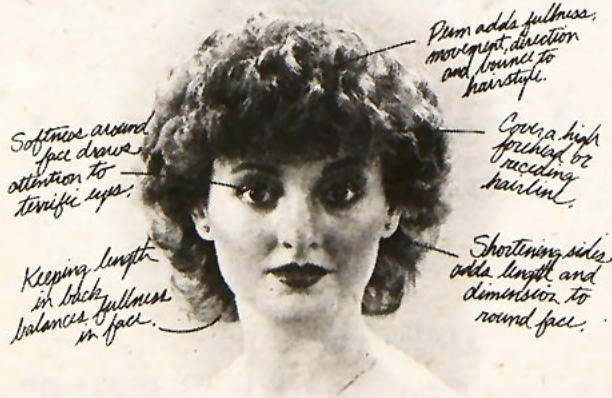 Perm adds fullness,
movement, direction
and bounce to
hairstyle.
Softness around
face draws
attention to
terrific eyes.
Cover a high
forehead or
receding
hairline.
Keeping length
in back
balances fullness
in face.
Shortening sides
adds length and
dimension to
round face.